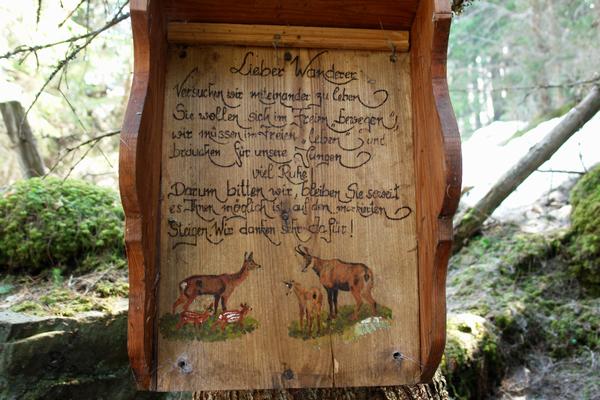 Lieber Wanderer
Versuchen wir miteinander zu leben
Sie wollen sich im Freien bewegen,
wir müssen im Freien leben und
brauchen für unsere Jungen
viel Ruhe
Darum bitten wir, bleiben Sie soweit
es Ihnen möglich ist, auf den markierten
Steigen. Wir danken sehr dafür!